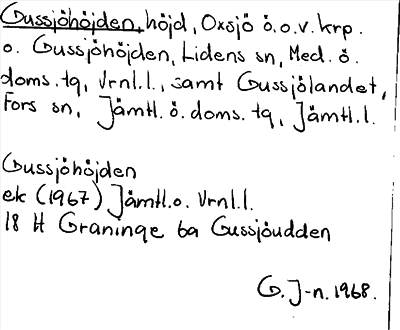 Gussjöhöjden, höjd, Oxsjö ö.o.v. krp.
o. Gussjöhöjden, Lidens sn, Med. ö.
doms. tg, Vrnl.l., samt Gussjölandet,
Fors sn, Jämtl. ö. doms. tg, Jämtl. l.
Gussjöhöjden
ek (1967) Jämtl. o. Vrnl. l.
18 H Graninge 6a Gussjöudden
G. J-n. 1968.